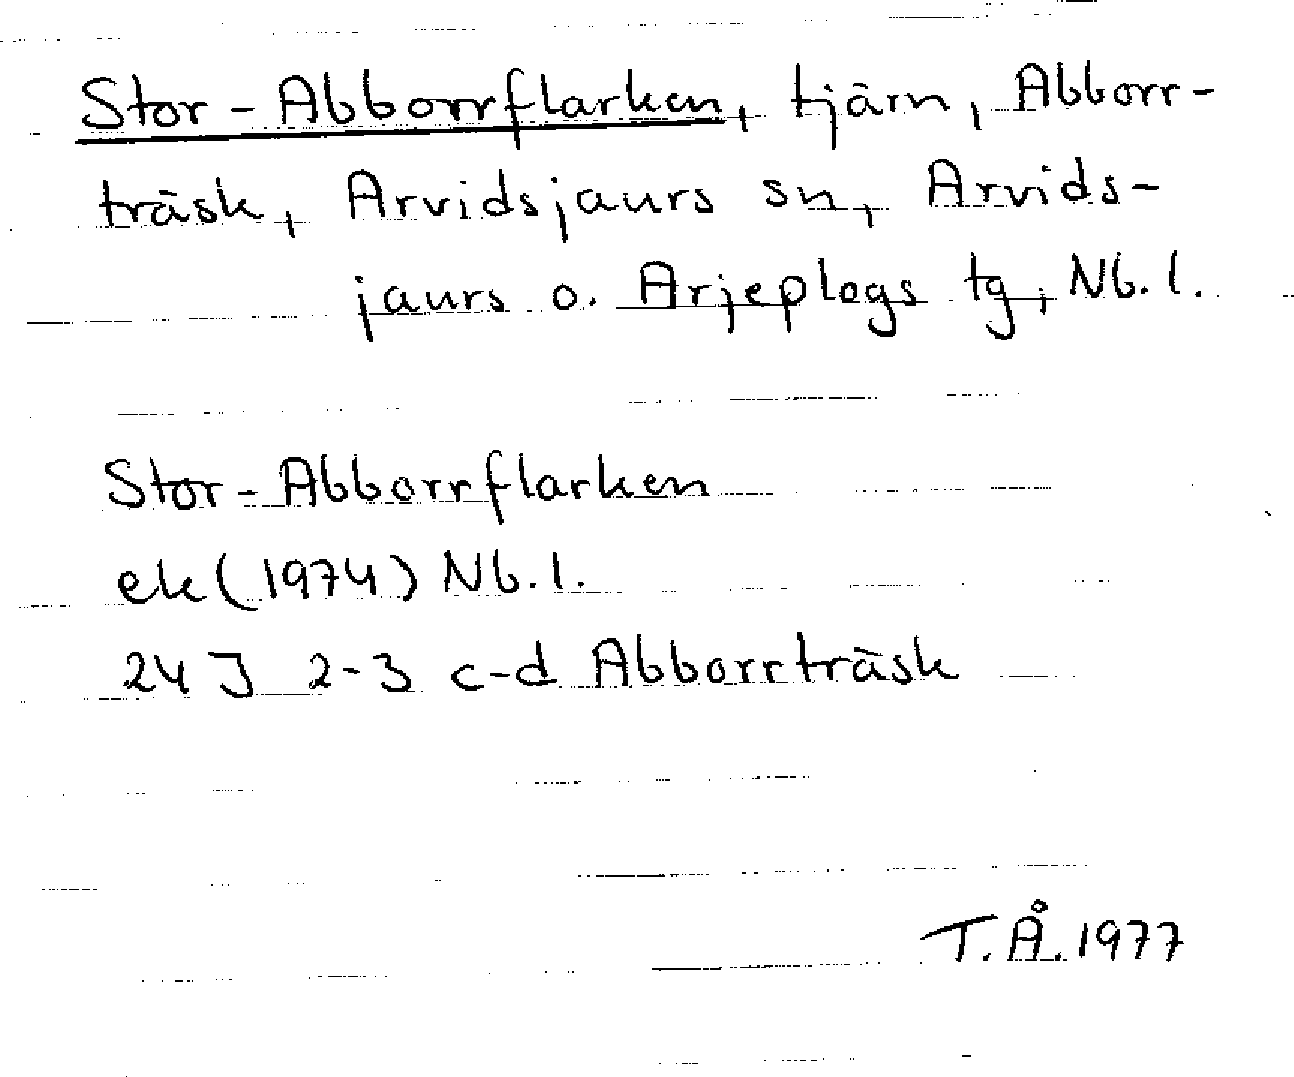 Stor-Abborrflarken, tjärn, Abborr-
träsk, Arvidsjaurs sn, Arvids-
jaurs o. Arjeplogs tg, Nb.l.
Stor-Abborrflarken
ek (1974) Nb.l.
24 J 2-3 c-d Abborrträsk
T.Å. 1977